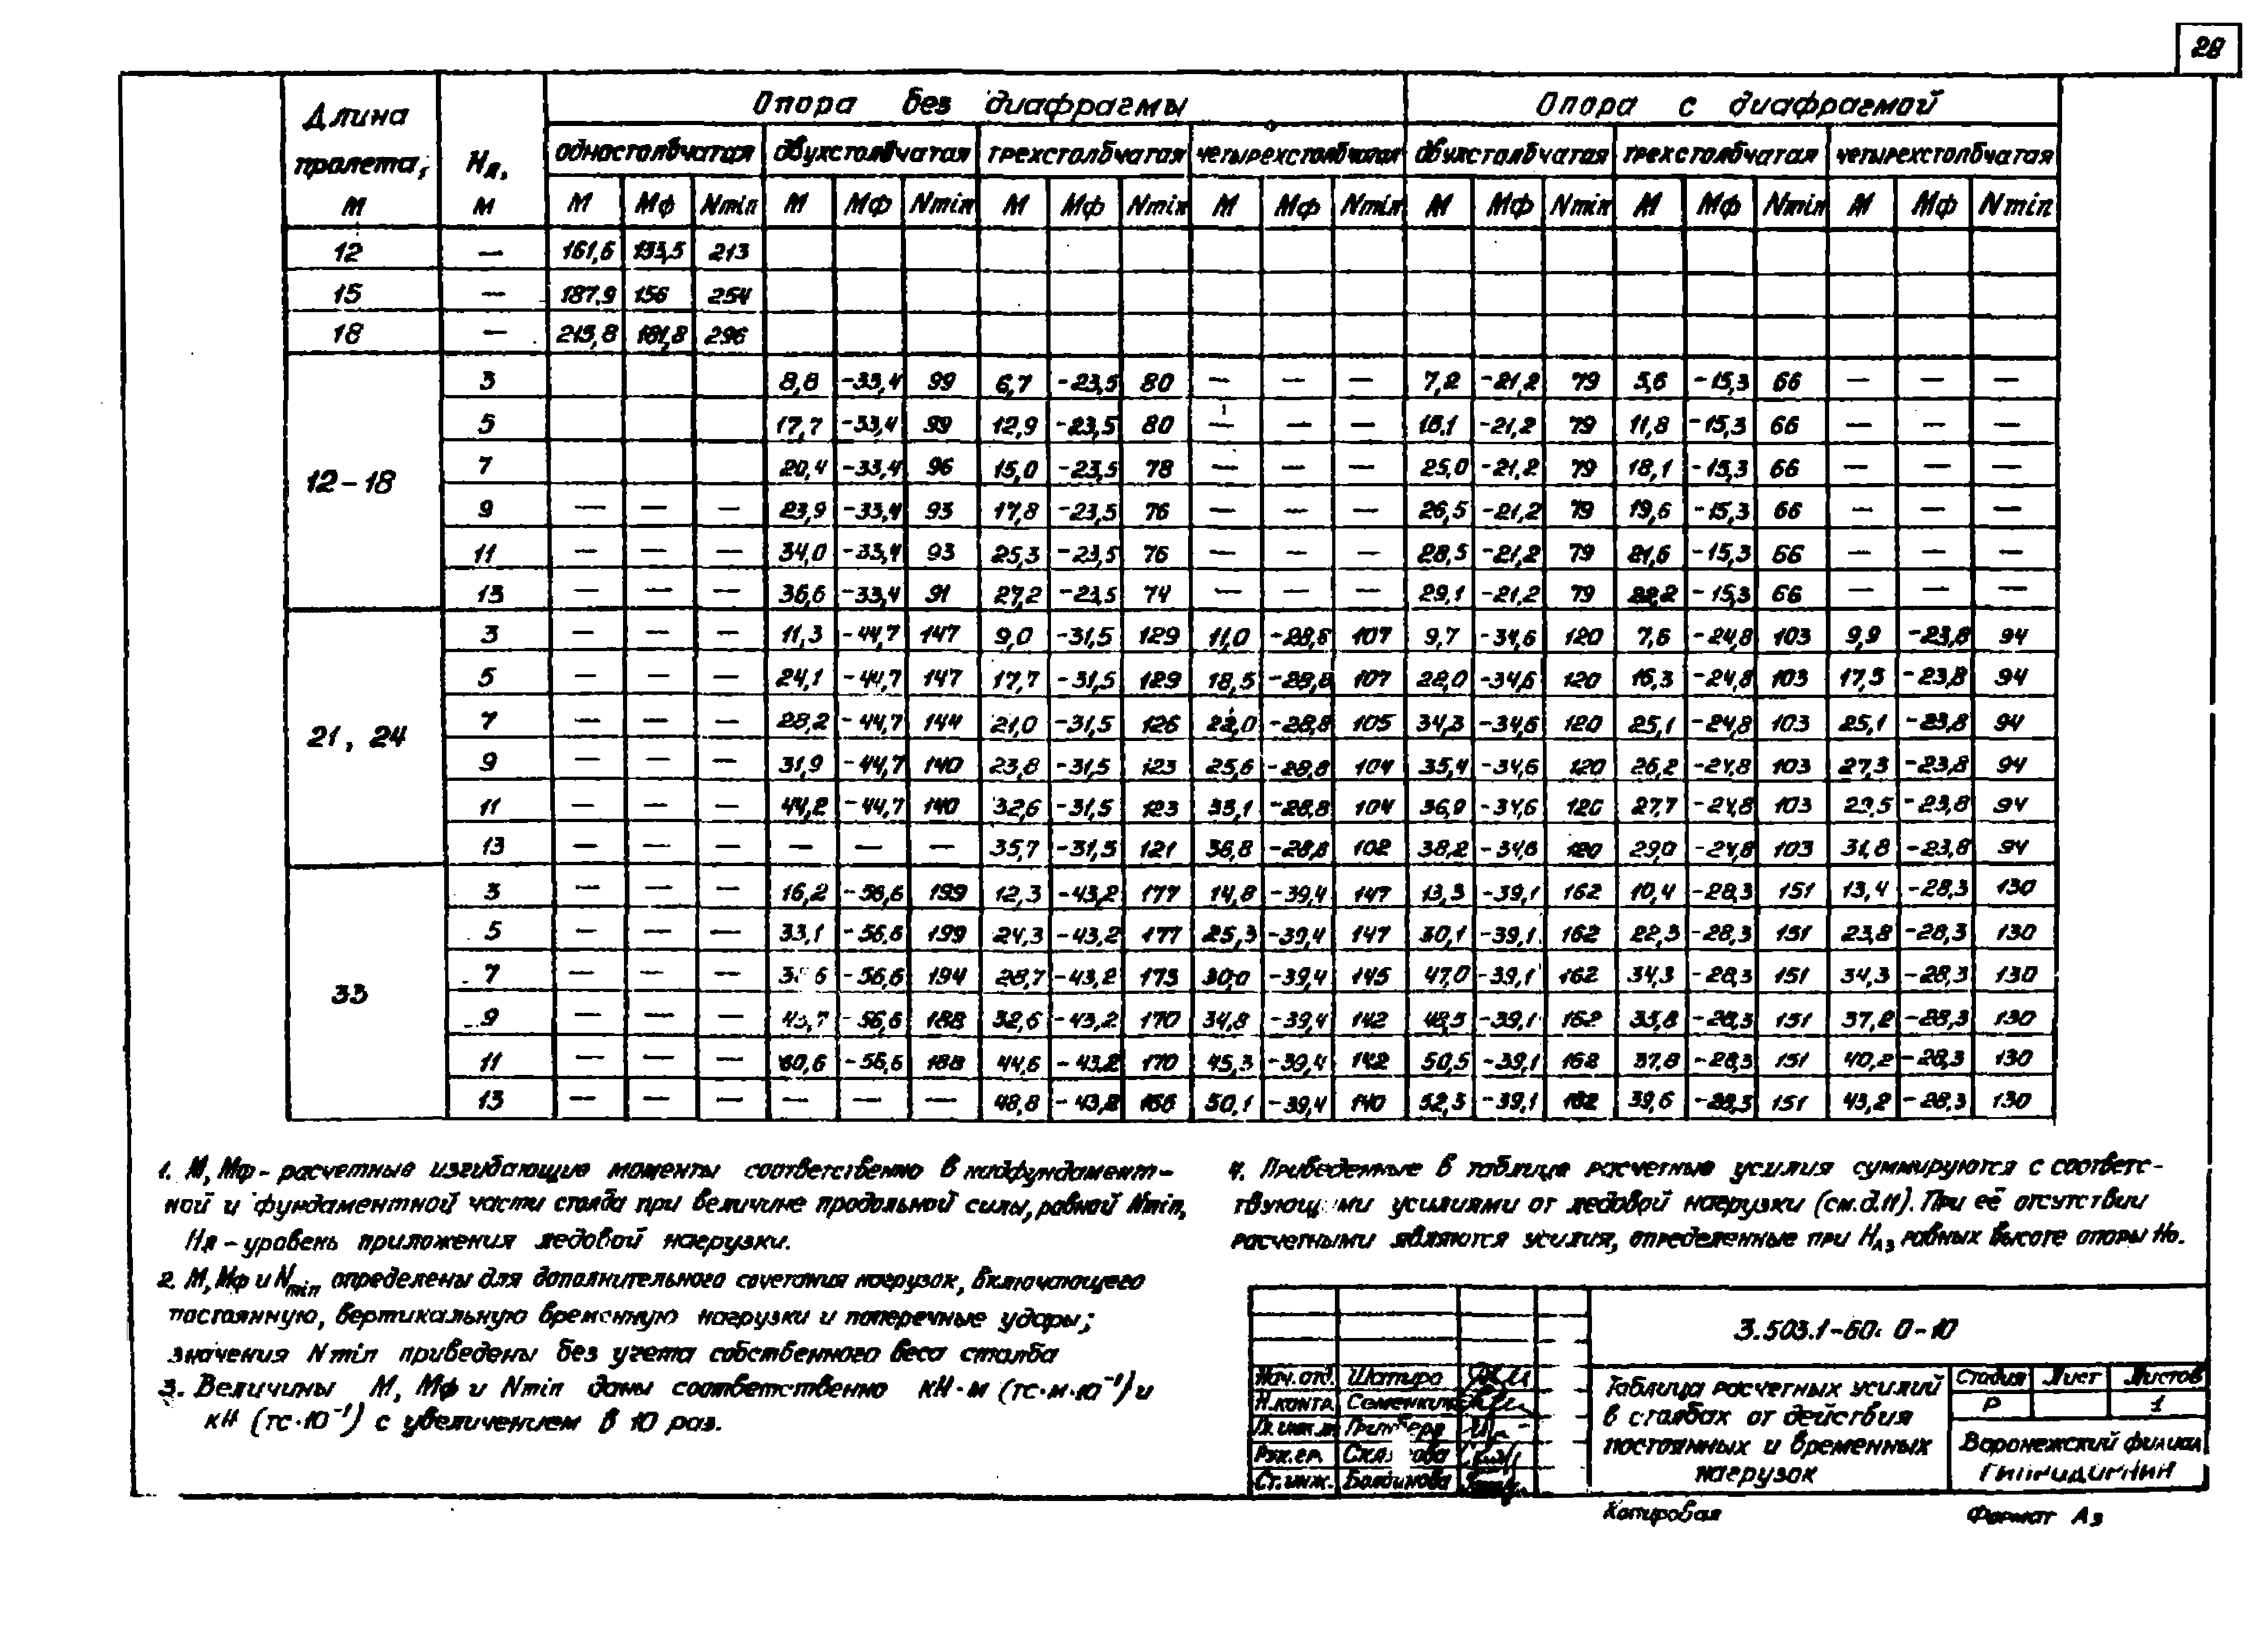 28
Длина пролета, М
Нл, м
Опора без диафрагмы
Опора с диафрагмой
одностолбчатая двухстолбчатая трехстолбчатая четырехстолбчатая двухстолбчатая трехстолбчатая четырехстолбчатая
М Мф Nmin М Мф Nmin М Мф Nmin М Мф Nmin М Мф Nmin М Мф Nmin М Мф Nmin
12 — 161,6 133,5 213
15 — 187,9 156 254
18 — 215,8 181,8 296
12-18
3 8,8 -33,4 99 6,7 -23,5 80 — — — 7,2 -21,2 79 5,6 -15,3 66 — — —
5 17,7 -33,4 99 12,9 -23,5 80 — — — 16,1 -21,2 79 11,8 -15,3 66 — — —
7 20,4 -33,4 96 15,0 -23,5 78 — — — 25,0 -21,2 79 18,1 -15,3 66 — — —
9 — — — 23,9 -33,4 93 17,8 -23,5 76 — — — 26,5 -21,2 79 19,6 -15,3 66 — — —
11 — — — 34,0 -33,4 93 25,3 -23,5 76 — — — 28,5 -21,2 79 21,6 -15,3 66 — — —
13 — — — 36,6 -33,4 91 27,2 -23,5 74 — — — 29,1 -21,2 79 22,2 -15,3 66 — — —
21, 24
3 — — — 11,3 -44,7 147 9,0 -31,5 129 11,0 -28,8 107 9,7 -34,6 120 7,6 -24,8 103 9,9 -23,8 94
5 — — — 24,1 -44,7 147 17,7 -31,5 129 18,5 -28,8 107 22,0 -34,6 120 16,3 -24,8 103 17,5 -23,8 94
7 — — — 28,2 -44,7 144 21,0 -31,5 126 22,0 -28,8 105 34,3 -34,6 120 25,1 -24,8 103 25,1 -23,8 94
9 — — — 31,9 -44,7 140 23,8 -31,5 123 25,6 -28,8 104 35,4 -34,6 120 26,2 -24,8 103 27,3 -23,8 94
11 — — — 44,2 -44,7 140 32,6 -31,5 123 33,1 -28,8 104 36,9 -34,6 120 27,7 -24,8 103 29,5 -23,8 94
13 — — — — — — 35,7 -31,5 121 36,8 -28,8 102 38,2 -34,6 120 29,0 -24,8 103 31,8 -23,8 94
33
3 — — — 16,2 -56,6 199 12,3 -43,2 177 14,8 -39,4 147 13,3 -39,1 162 10,4 -28,3 151 13,4 -28,3 130
5 — — — 33,1 -56,6 199 24,3 -43,2 177 25,3 -39,4 147 30,1 -39,1 162 22,3 -28,3 151 23,8 -28,3 130
7 — — — -56,6 194 28,7 -43,2 173 30,0 -39,4 145 47,0 -39,1 162 34,3 -28,3 151 34,3 -28,3 130
9 — — — -56,6 188 32,6 -43,2 170 34,8 -39,4 142 48,5 -39,1 162 35,8 -28,3 151 37,2 -28,3 130
11 — — — 60,6 -56,6 188 44,6 -43,2 170 45,3 -39,4 142 50,5 -39,1 162 37,8 -28,3 151 40,2 -28,3 130
13 — — — — — — 48,8 -43,2 166 50,1 -39,4 140 52,3 -39,1 162 39,6 -28,3 151 43,2 -28,3 130
1. М, Мф - расчетные изгибающие моменты соответственно в надфундамент-
ной и фундаментной части столба при величине продольной силы, равной Nmin,
Нл - уровень приложения ледовой нагрузки.
2. М, Мф и Nmin определены для дополнительного сочетания нагрузок, включающего
постоянную, вертикальную временную нагрузки и поперечные удары;
значения Nmin приведены без учета собственного веса столба
3. Величины М, Мф и Nmin даны соответственно кН·м (тс·м·10⁻¹) и
кН (тс·10⁻¹) с увеличением в 10 раз.
4. Приведенные в таблице расчетные усилия суммируются с соответс-
твующими усилиями от ледовой нагрузки (см.д.11). При её отсутствии
расчетными являются усилия, определенные при Нл, равных высоте опоры Но.
3.503.1-60. 0-10
Нач. отд. Шапиро
Н.контр. Семенкин
Гл. инж. пр.
Рук. гр.
Ст. инж. Болдинова
Таблица расчетных усилий
в столбах от действия
постоянных и временных
нагрузок
Стадия Лист Листов
Р 1
Воронежский филиал
ГИПРОДОРНИИ
Копировал
Формат А3